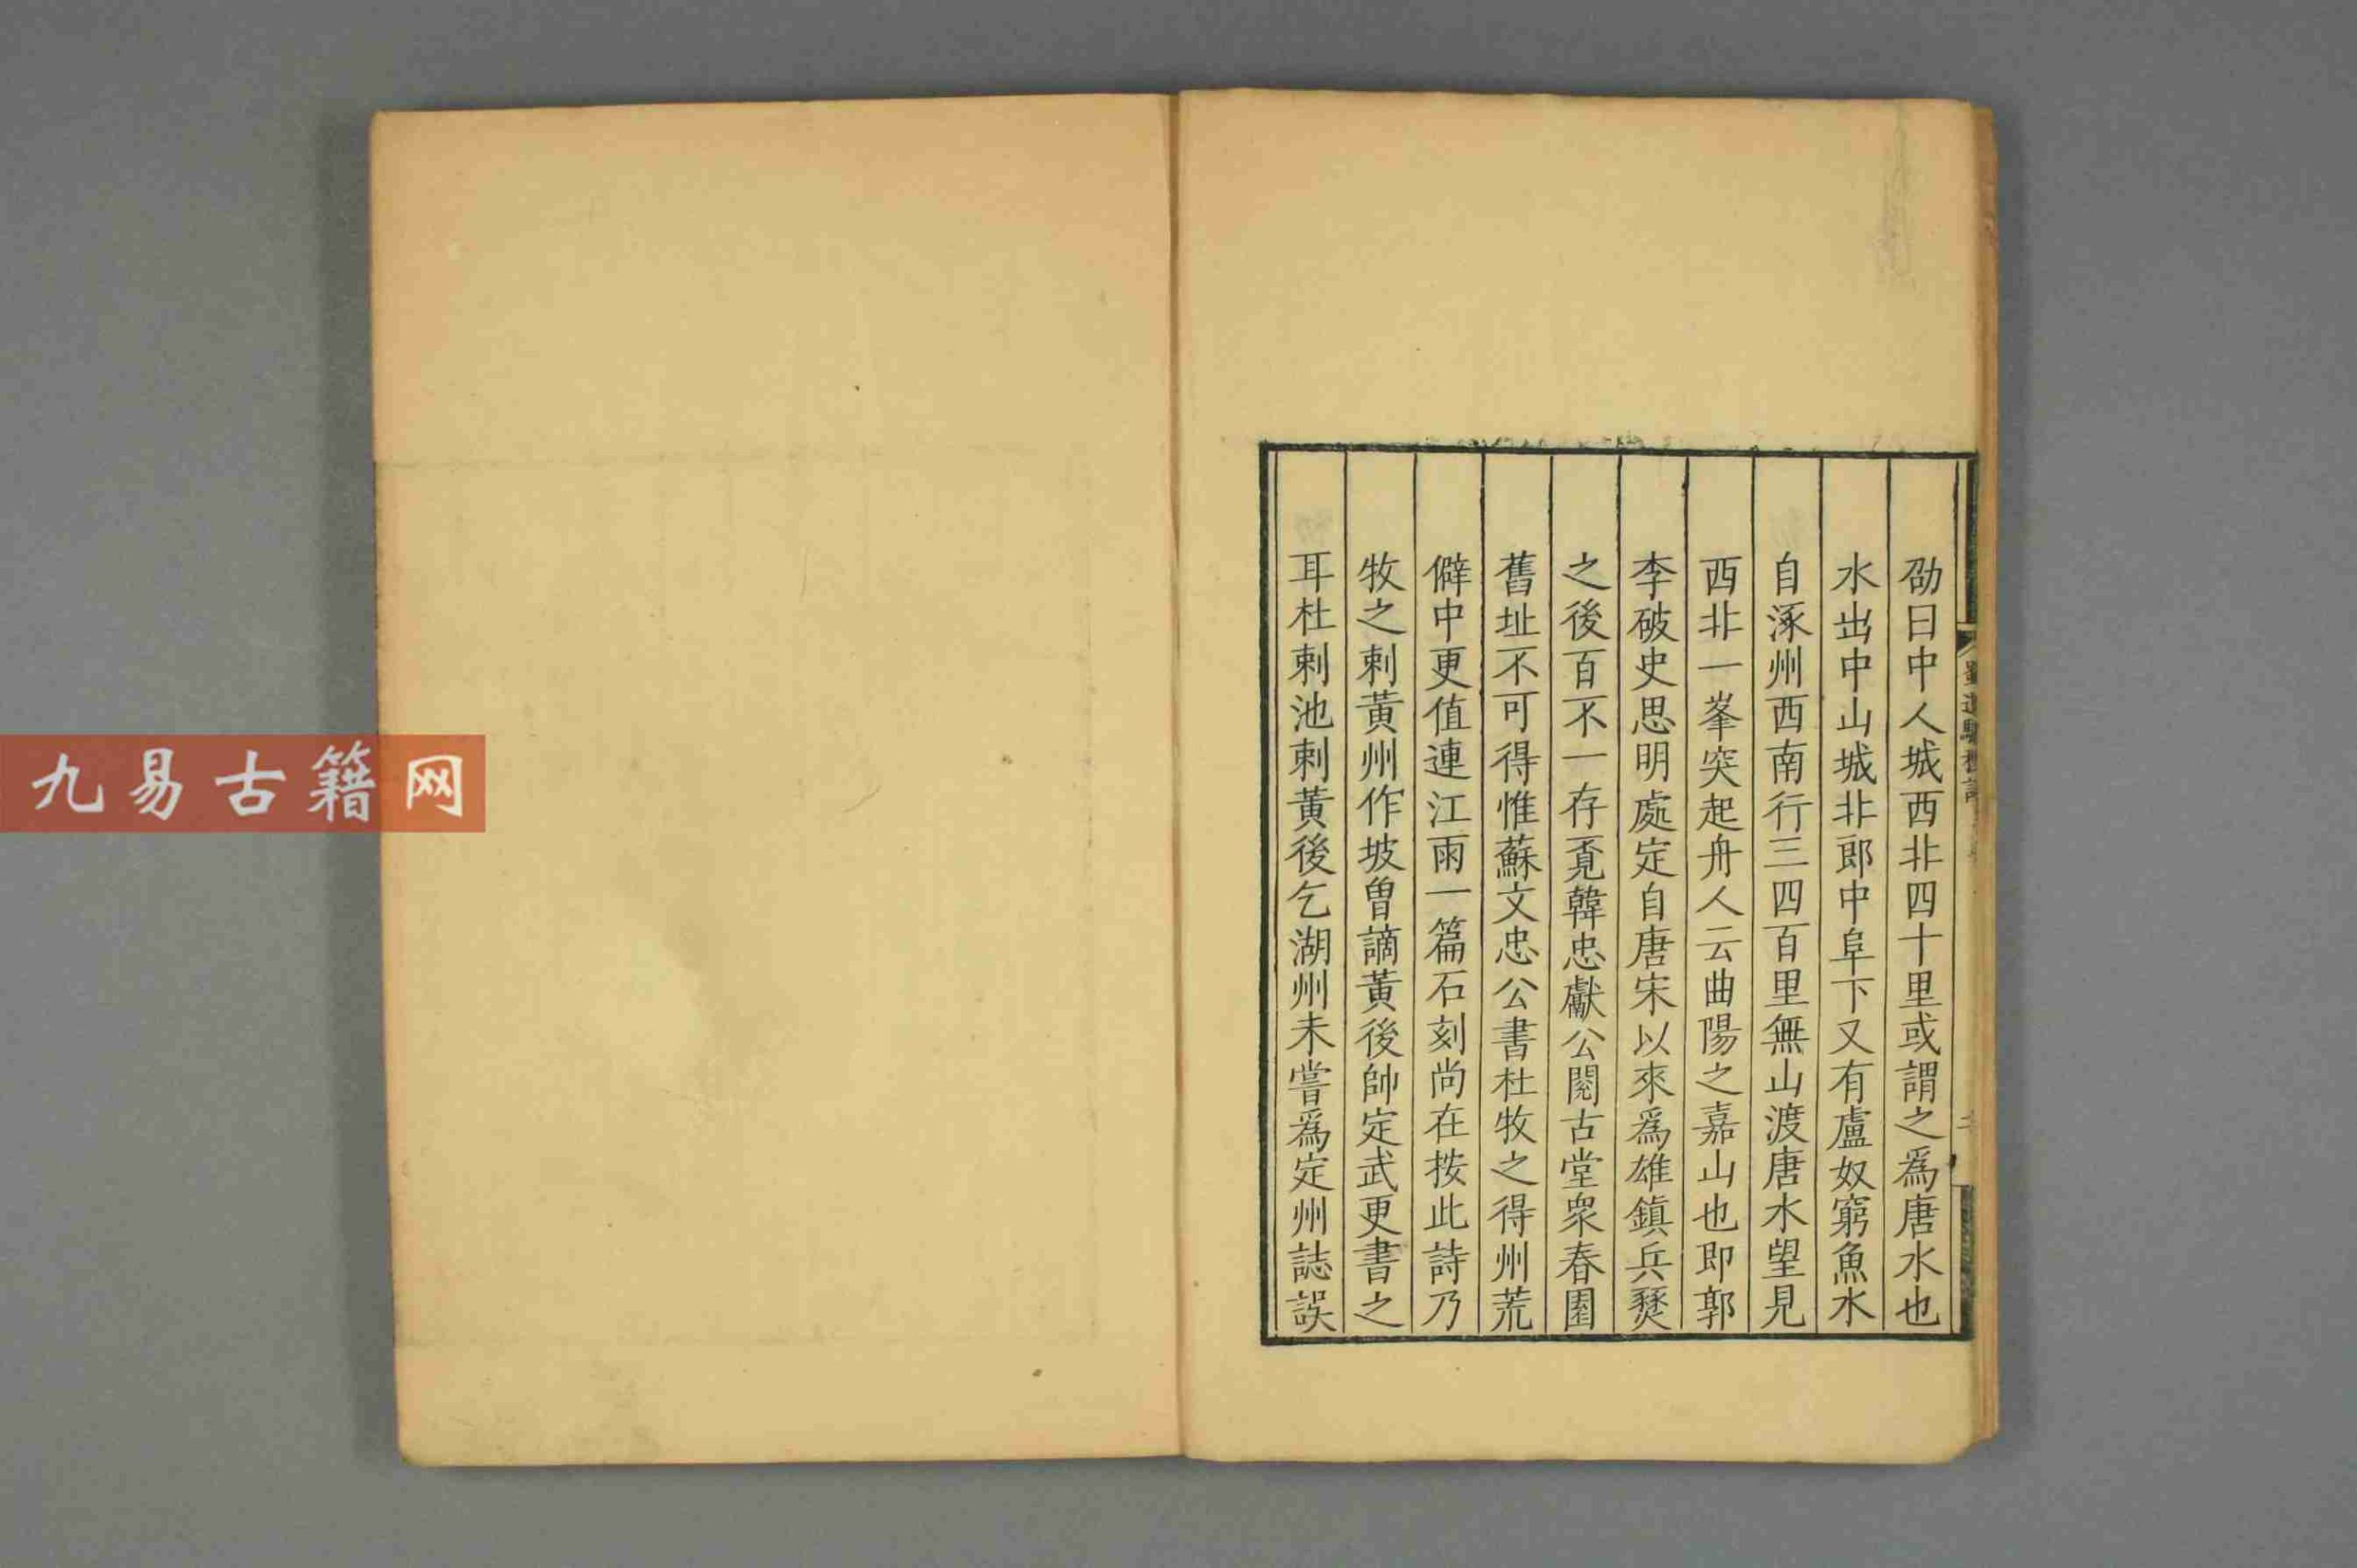 劭曰中人城西北四十里或謂之爲唐水也
水出中山城北郎中阜下又有盧奴窮魚水
自涿州西南行三四百里無山渡唐水望見
西北一峯突起舟人云曲陽之嘉山也即郭
李破史思明處定自唐宋以來爲雄鎮兵燹
之後百不一存覔韓忠獻公閱古堂衆春園
舊址不可得惟蘇文忠公書杜牧之得州荒
僻中更值連江雨一篇石刻尚在按此詩乃
牧之刺黃州作坡曽謫黃後帥定武更書之
耳杜刺池刺黃後乞湖州未嘗爲定州誌誤
九易古籍网